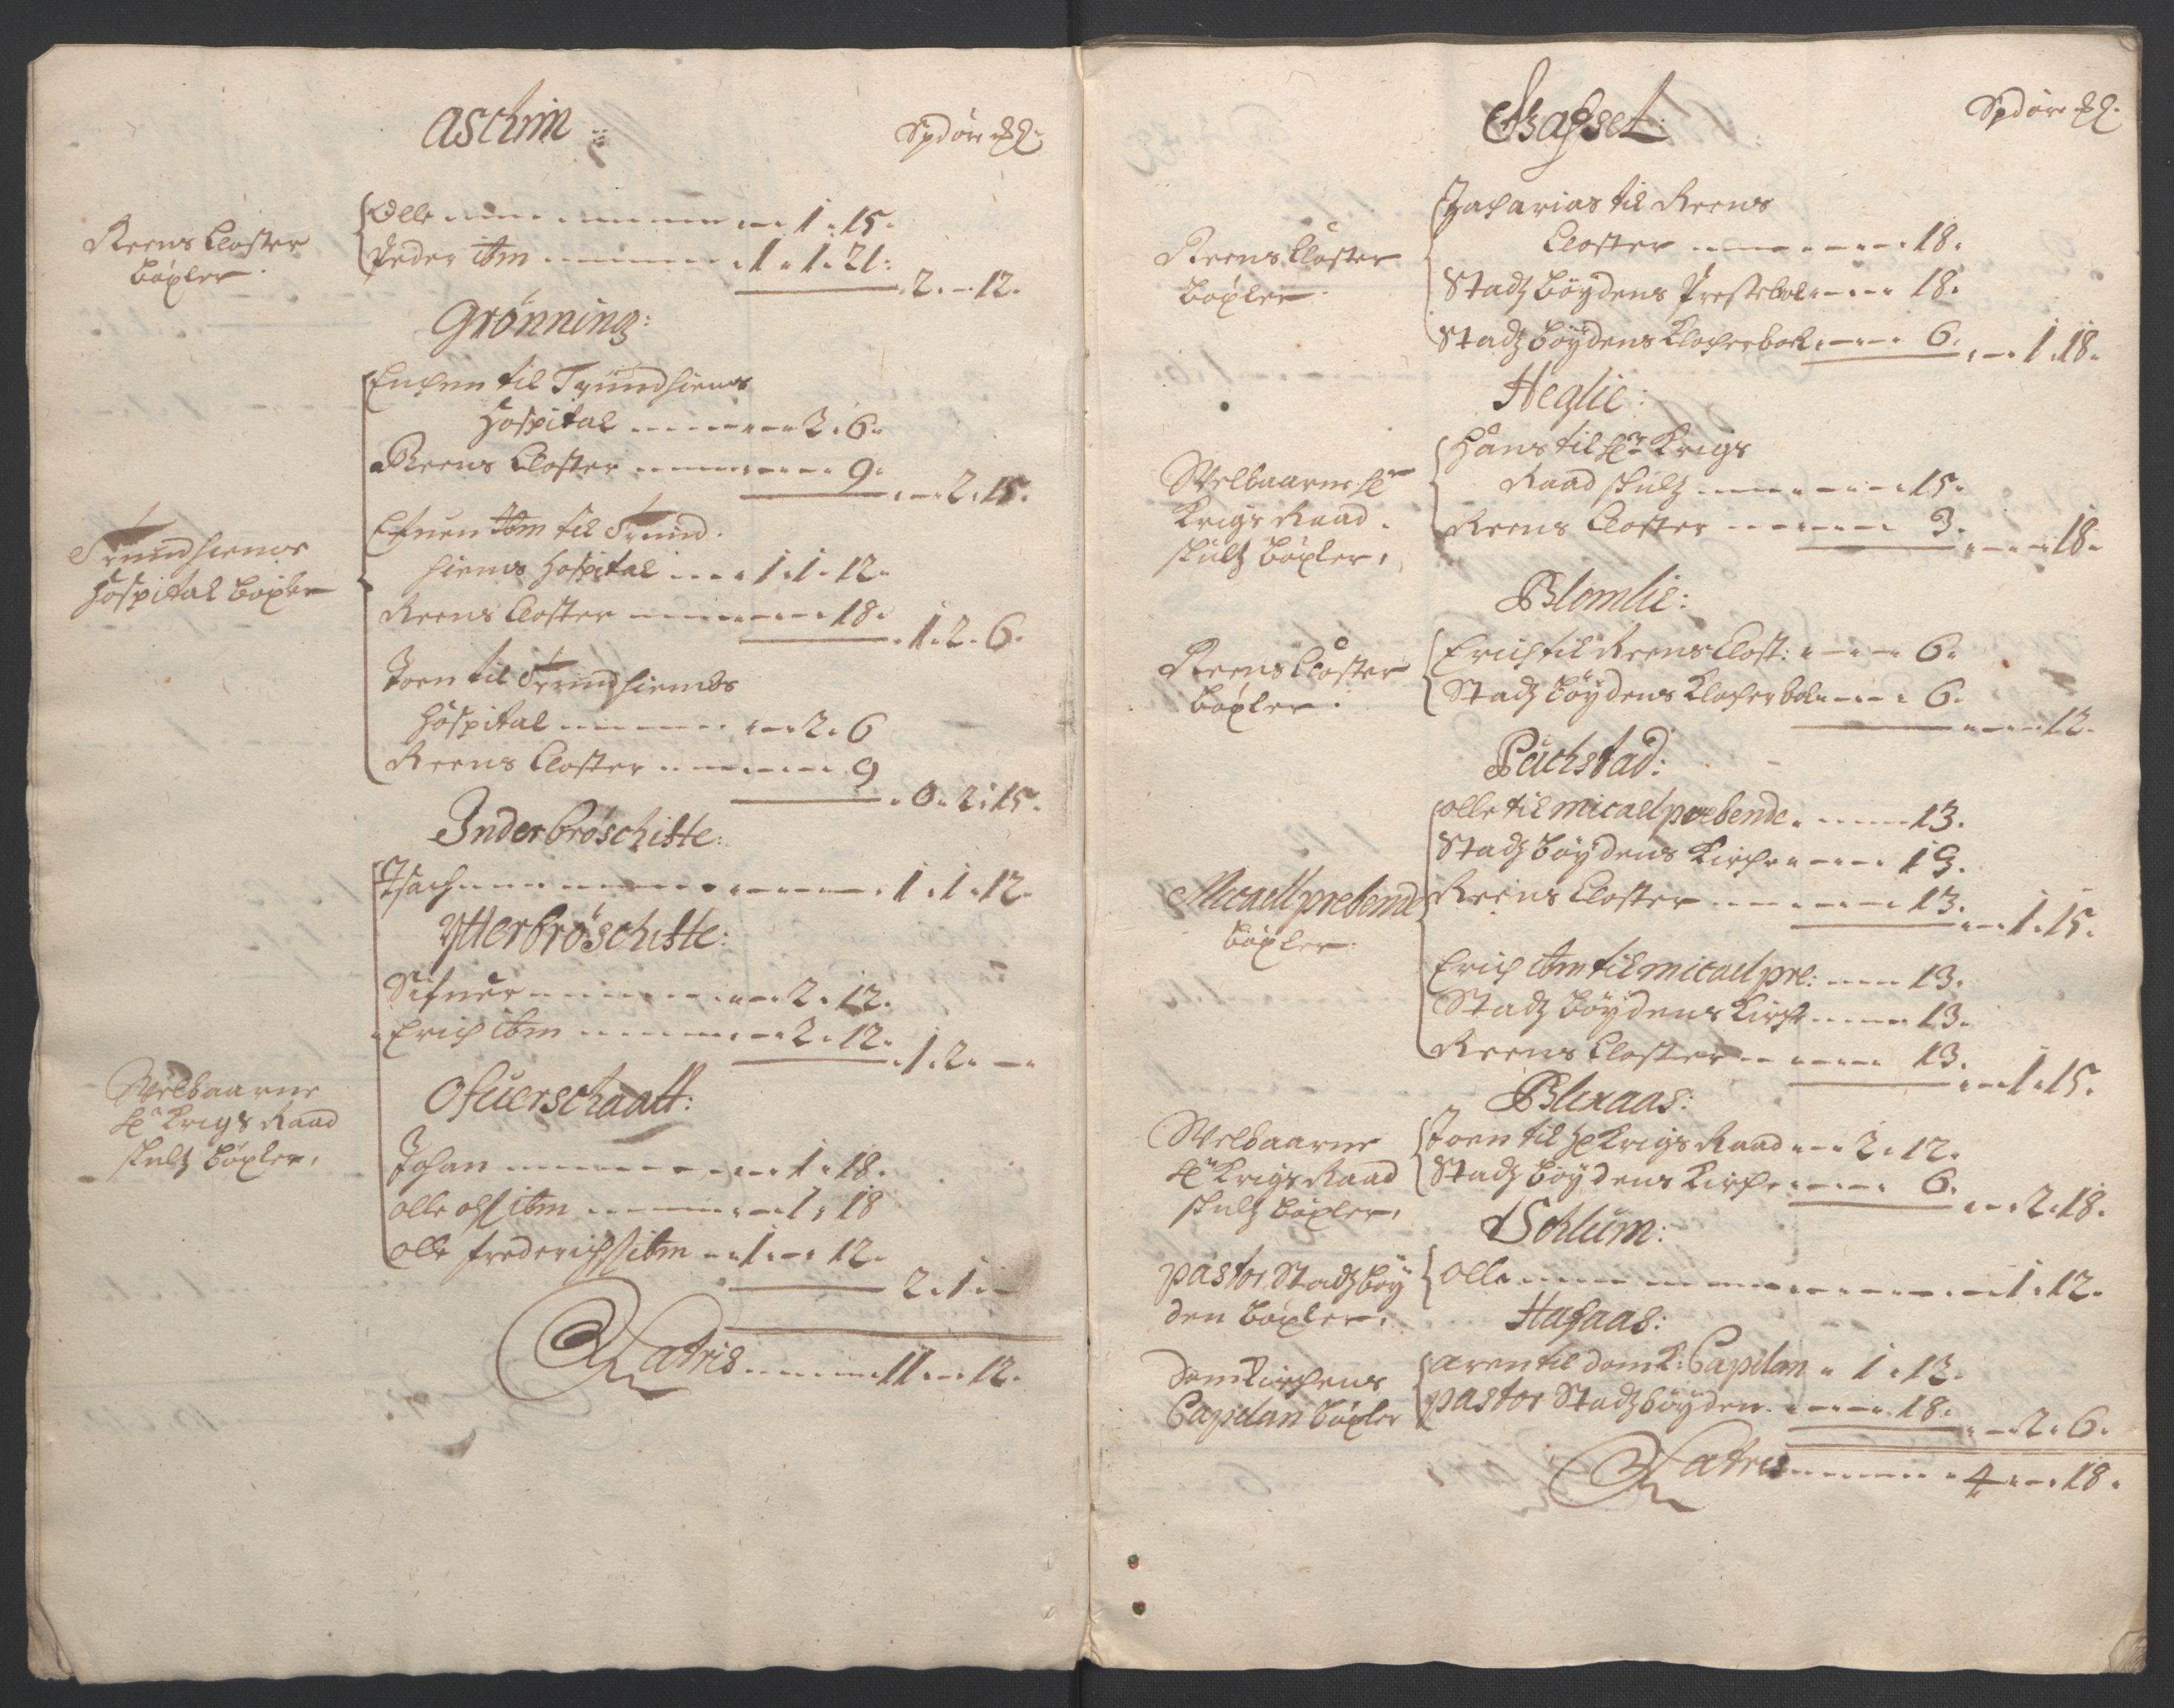 Aschim
Spd ør
Reens Closter
böxler
Olle 1 . 15.
Peder ibm 1 . 1 . 21.
2 . 12.
Grönning:
Enchen til Trundhiems
Hospital 2 . 6.
Reens Closter 9.
2 . 15.
Trundhiems
Hospital böxler
Efuen ibm til Trund
hiems Hospital 1 . 1 . 12.
Reens Closter 18.
1 . 2 . 6.
Joen til Trundhiembs
Hospital 2 . 6
Reens Closter 9
0 . 2 . 15.
Inderbröschitte:
Isach 1 . 1 . 12.
Ytterbröschitte:
Sifuer 2 . 12.
Erich ibm 2 . 12.
1 . 2 .
Welbaarne
Hr Krigs Raad
Skultz böxler,
Ofuerschaatt:
Johan 1 . 18.
Olle Ols ibm 1 . 18
Olle Frederichs ibm 1 . 12.
2 . 1 .
Latris 11 . 12.
Spd ør
Reens Closter
böxler
Zacharias til Reens
Closter 18.
Stadzböydens Prestebol 18.
Stadzböydens Klocherbol 6.
1 . 18.
Heglie:
Welbaarne Hr
Krigs Raad
Skultz böxler,
Hans til Hr Krigs
Raad Skultz 15.
Reens Closter 3.
18.
Blomlie:
Reens Closter
böxler.
Erich til Reens Clost: 6.
Stadzböydens Klocherbol 6.
12.
Puchstad:
Micaell prebende
böxler
Olle til Micaell prebende. 13.
Stadzböydens Kirche 13.
Reens Closter 13.
1 . 15.
Erich ibm til Micaell pre: 13.
Stadzböydens Kirche 13.
Reens Closter 13.
1 . 15.
Blixaas:
Welbaarne
Hr Krigs Raad
Skultz böxler,
Joen til Hr Krigs Raad 2 . 12.
Stadzböydens Kirche 6.
2 . 18.
Solum:
Pastor Stadzböy
den böxler,
Olle 1 . 12.
Hafaas:
Domkirchens
Capelan böxler
Aren til Domk: Capelan 1 . 12.
Pastor Stadzböyden 18.
2 . 6.
Latris 4 . 18.